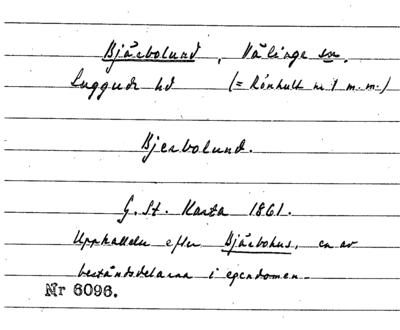 Bjärbolund, Välinge sn.
Luggude hd (= Rönhult nr 1 m.m.)
Bjerbolund.
G. St. Karta 1861.
Uppkallelse efter Bjärbohus, en av
beståndsdelarna i egendomen.
Nr 6096.